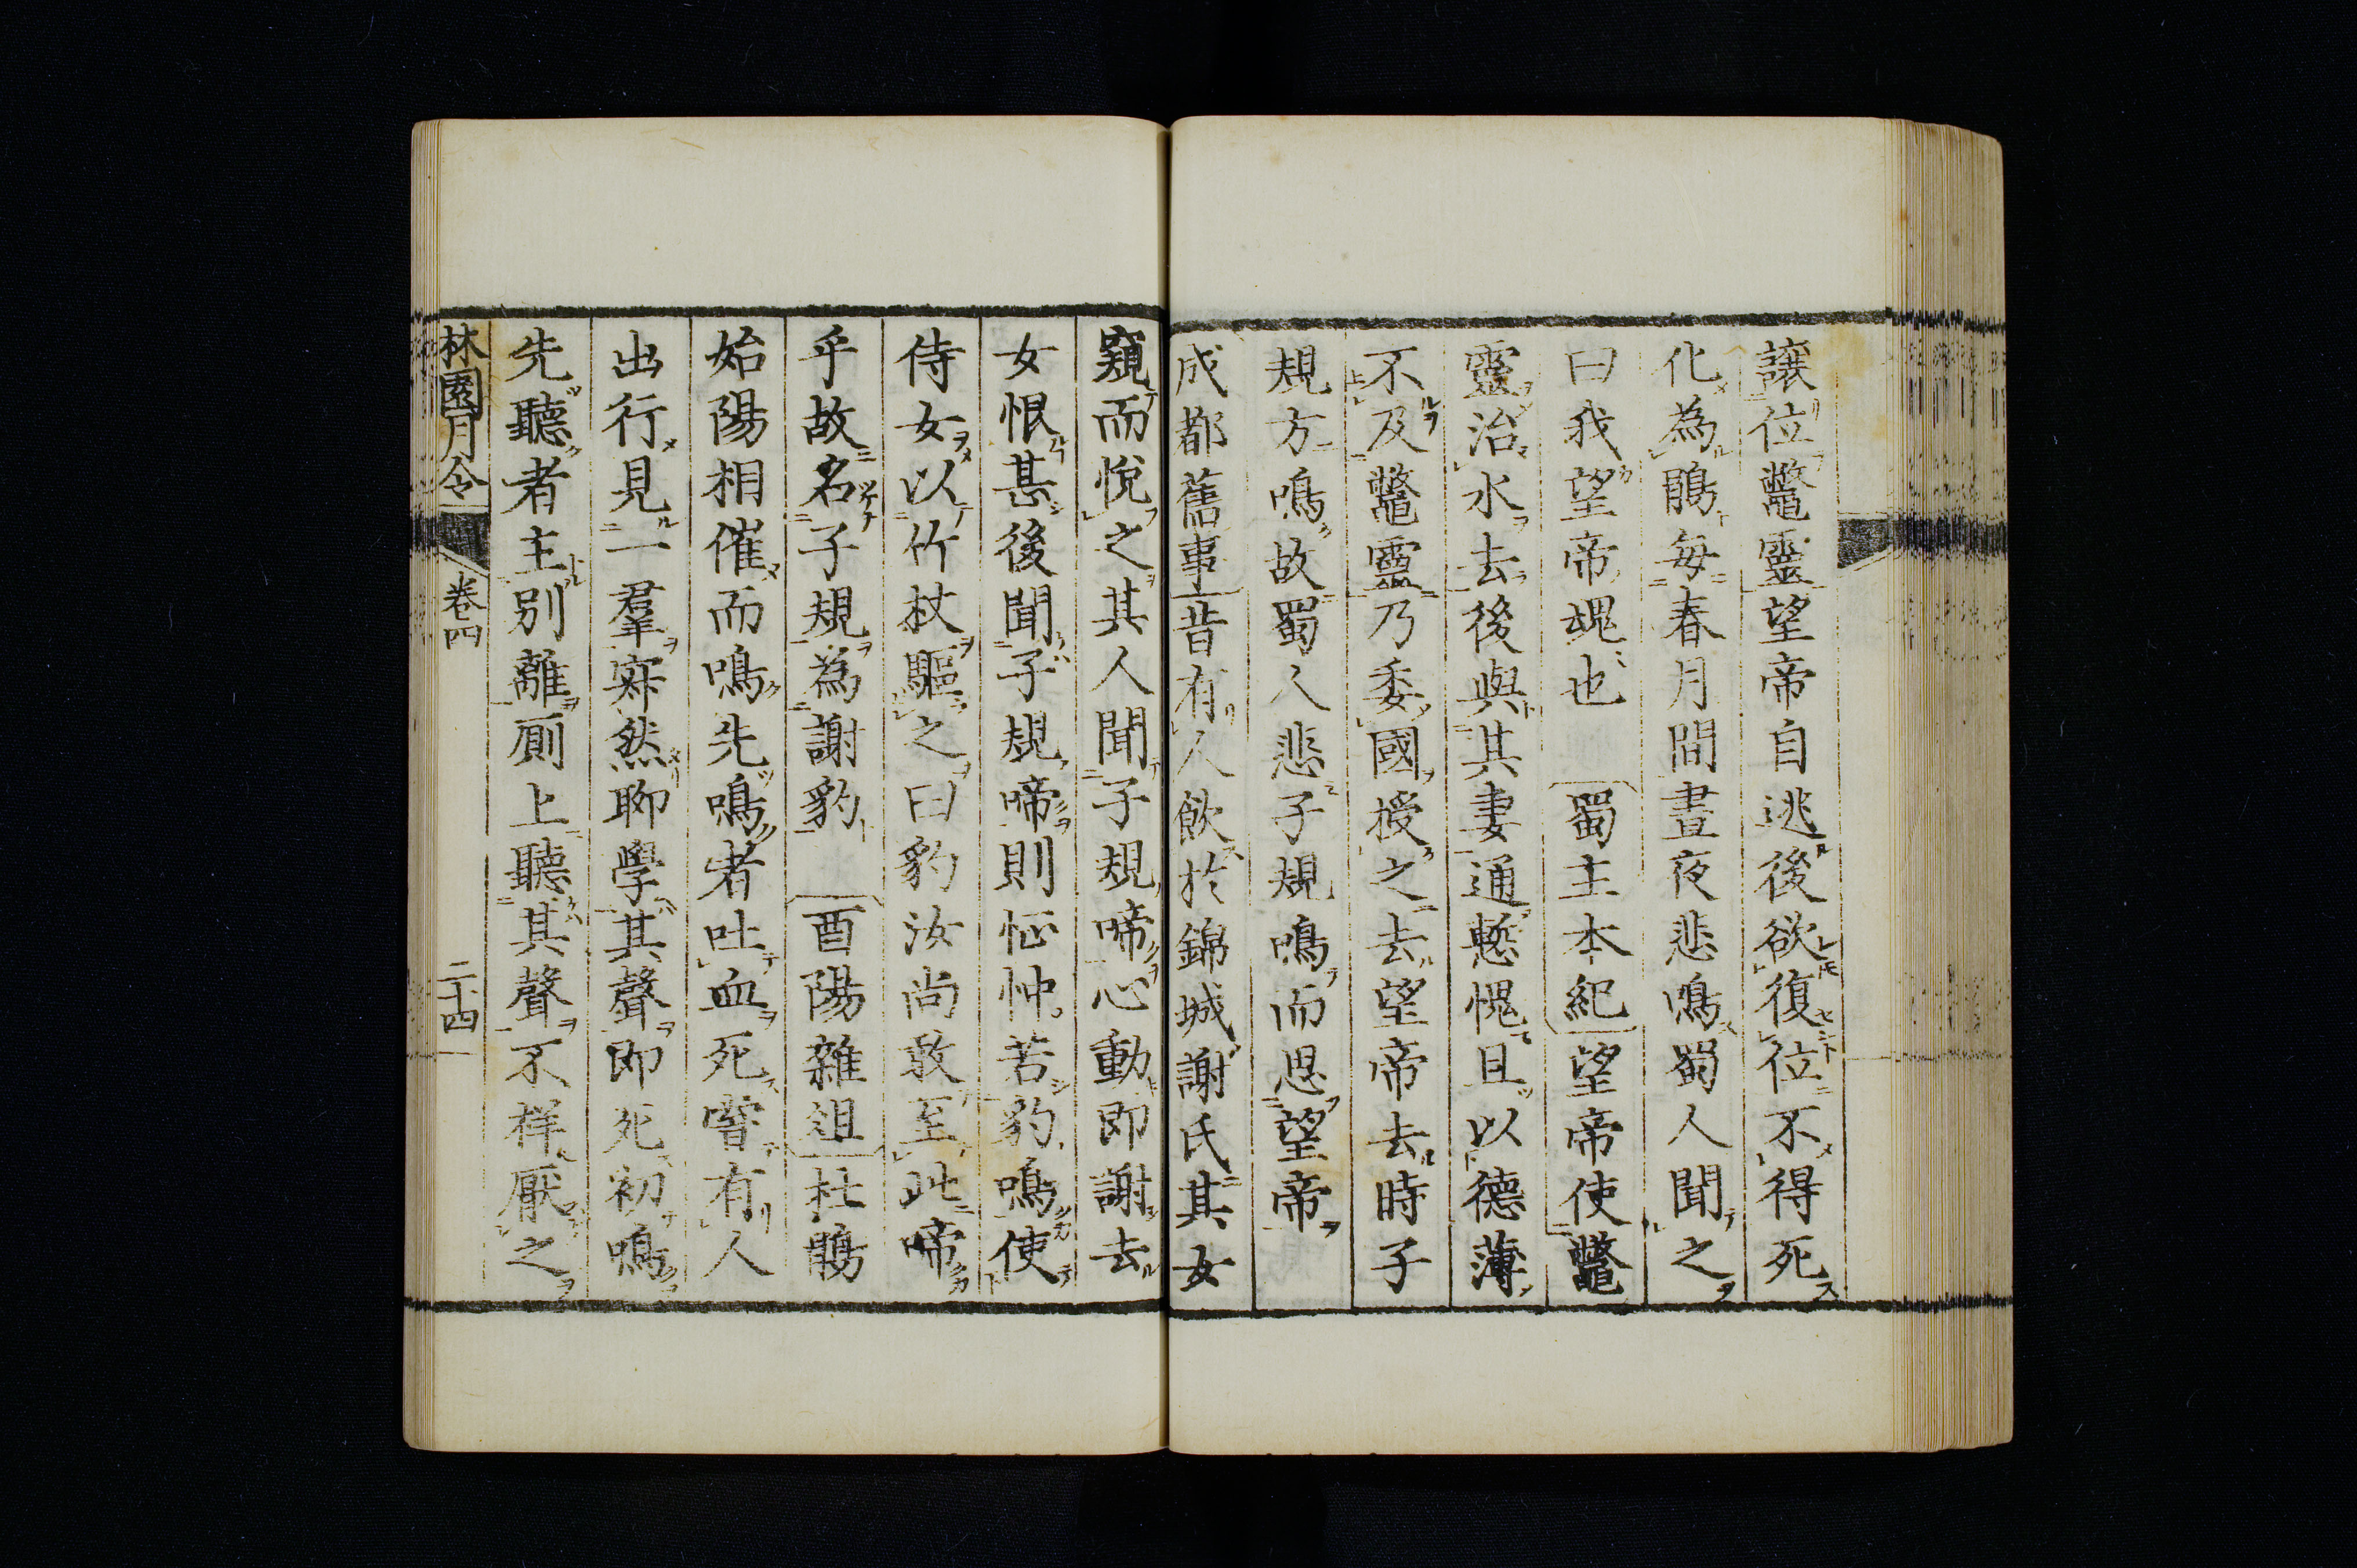 讓位鼈靈望帝自逃後欲復位不得死
化為鵑每春月間晝夜悲鳴蜀人聞之
曰我望帝魂也　蜀主本紀望帝使鼈
靈治水去後與其妻通慙愧且以德薄
不及鼈靈乃委國授之去望帝去時子
規方鳴故蜀人悲子規鳴而思望帝
成都舊事昔有人飲於錦城謝氏其女
窺而悅之其人聞子規啼心動即謝去
女恨甚後聞子規啼則怔忡若豹鳴使
侍女以竹杖驅之曰豹汝尚敢至此啼
乎故名子規為謝豹　酉陽雜俎杜鵑
始陽相催而鳴先鳴者吐血死嘗有人
出行見一羣寂然聊學其聲即死初鳴
先聽者主別離厠上聽其聲不祥厭之
林園月令　卷四　二十四